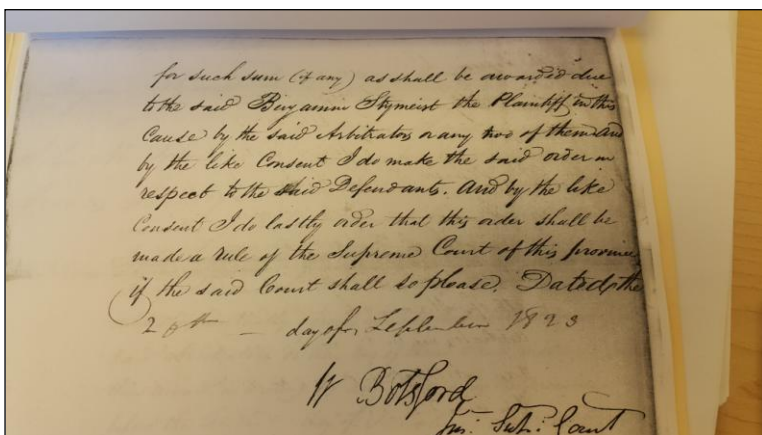 for such sum (if any) as shall be awarded due
to the said Benjamin Stymeist the Plaintiff in this
Cause by the said Arbitrators or any two of them And
by the like Consent I do make the said order in
respect to the said Defendants. And by the like
Consent I do lastly order that this order shall be
made a rule of the Supreme Court of this province
if the said Court shall so please. Dated the
day of September 1823
W Botsford
Jus. Sup. Court